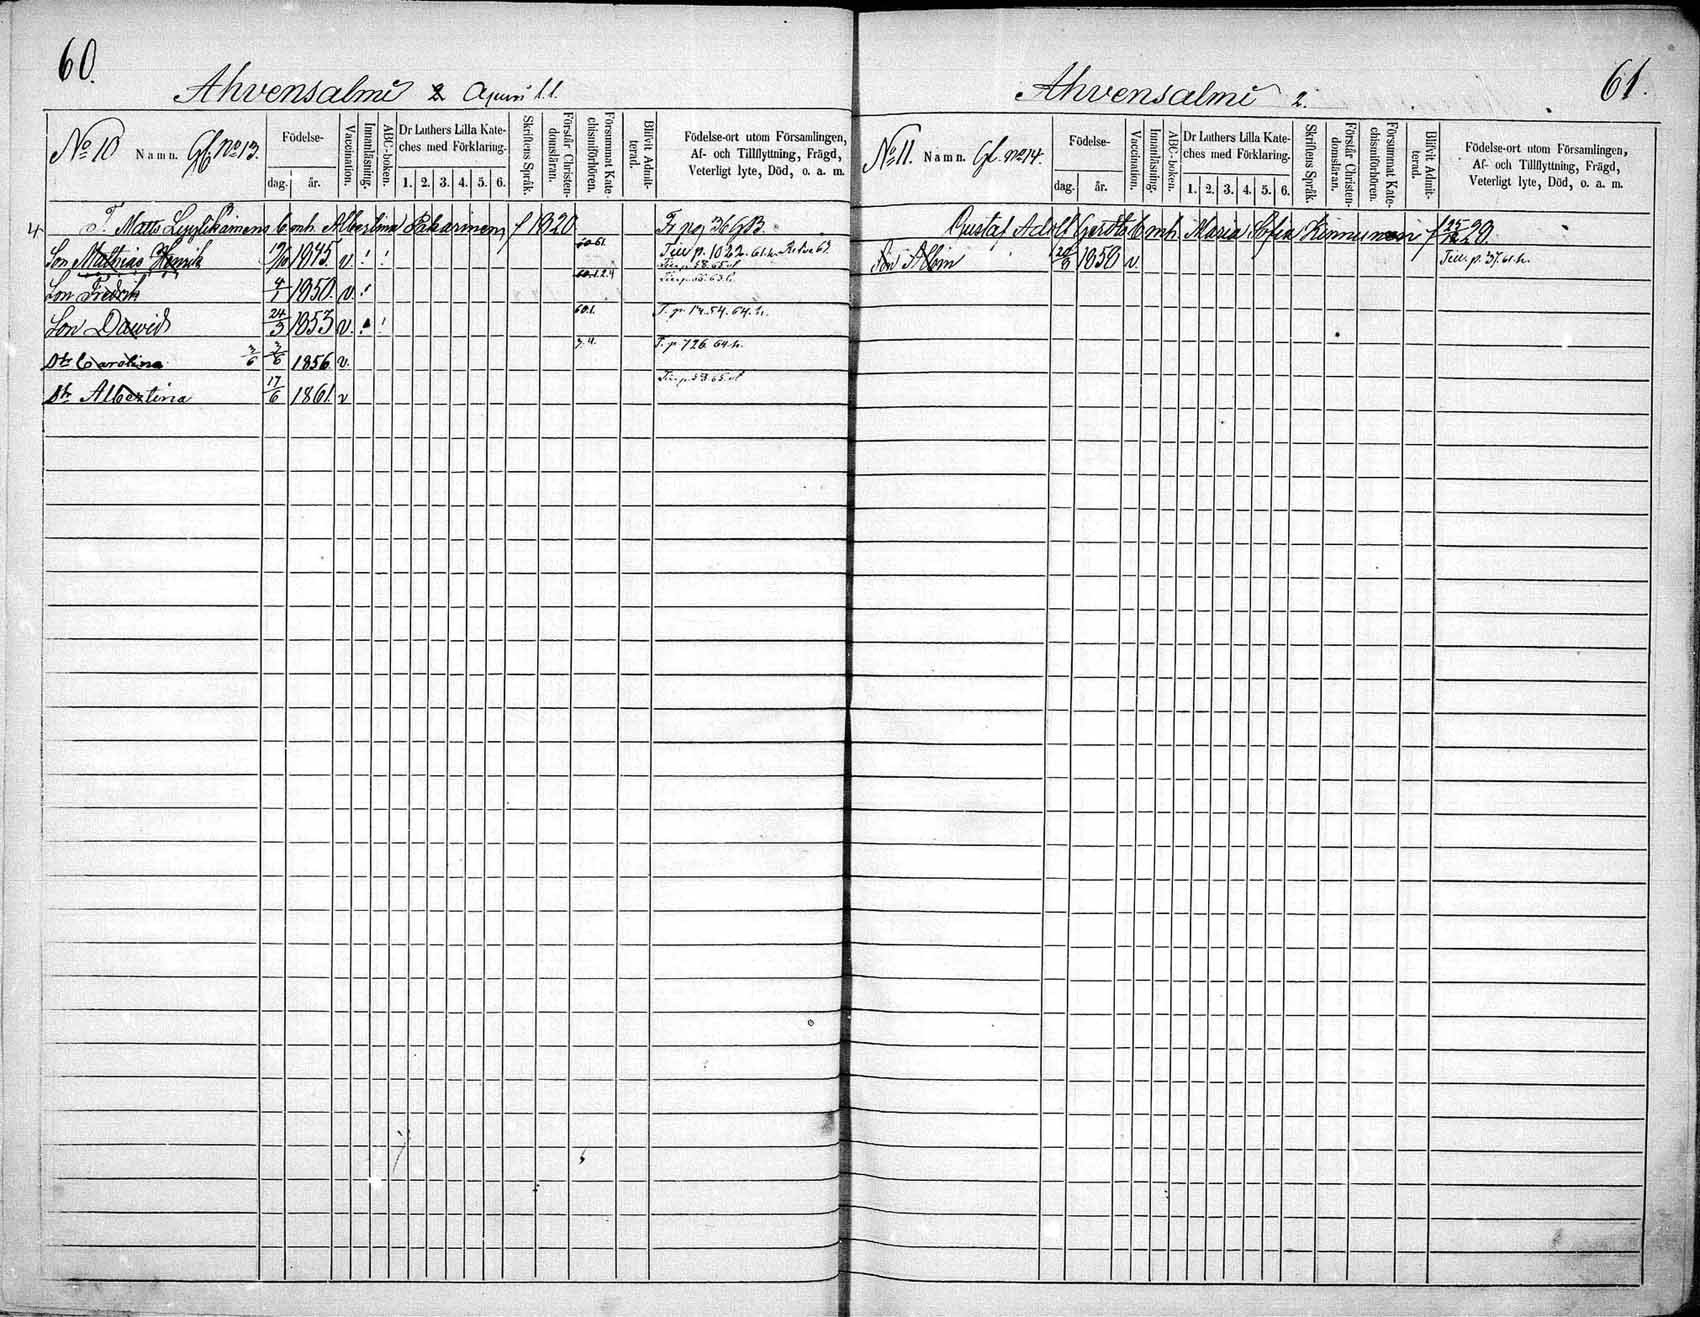 60.
Ahvensalmi 2
No 10 Namn. Gl. No 13.
Födelse-
dag. år.
Vaccination.
Innanläsning.
ABC-boken.
Dr Luthers Lilla Kate-
ches med Förklaring.
1. 2. 3. 4. 5. 6.
Skriftens Språk.
Förstår Christen-
domsläran.
Försummat Kate-
chismiförhören.
Blifvit Admit-
terad.
Födelse-ort utom Församlingen,
Af- och Tillflyttning, Frägd,
Veterligt lyte, Död, o. a. m.
4 T. Matts Leppikäinens Enk. Albertina Pakarinen f 1820 Fr pag 36
Son Mathias Henrik 1845. v. ! ! 60.61 p. 1022. 61.
Son Fredrik 4/1 1850. v. !
Son Dawid 24/3 1853 v. ! ! 60.1. T. p. 54. 64. h.
Dtr Carolina 3/6 3/6 1856. v. T. p 726. 64. h.
Dtr Albertina 17/6 1861. v
61.
Ahvensalmi 2.
No 11. Namn. Gl. No 14.
Födelse-
dag. år.
Vaccination.
Innanläsning.
ABC-boken.
Dr Luthers Lilla Kate-
ches med Förklaring.
1. 2. 3. 4. 5. 6.
Skriftens Språk.
Förstår Christen-
domsläran.
Försummat Kate-
chismiförhören.
Blifvit Admit-
terad.
Födelse-ort utom Församlingen,
Af- och Tillflyttning, Frägd,
Veterligt lyte, Död, o. a. m.
Gustaf Adolf Enk. Maria Sofia Kinnunen f 20.
Son Albin 1850 v. p. 37. 61. h.